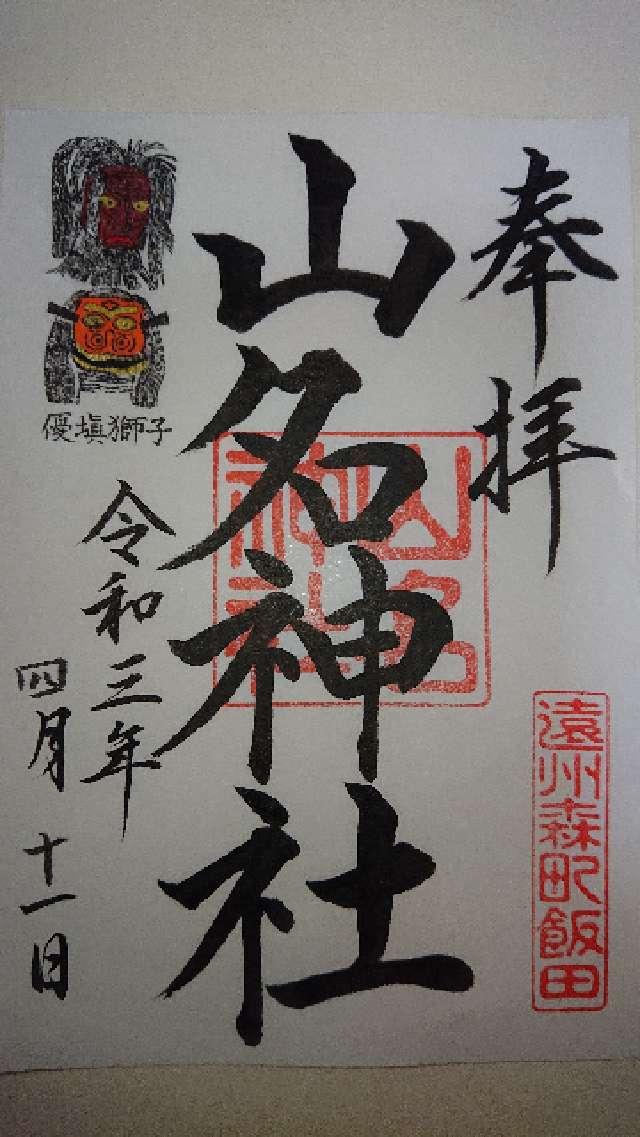 奉拝
山名神社
山名神社
遠州森町飯田
優塡獅子
令和三年
四月十一日